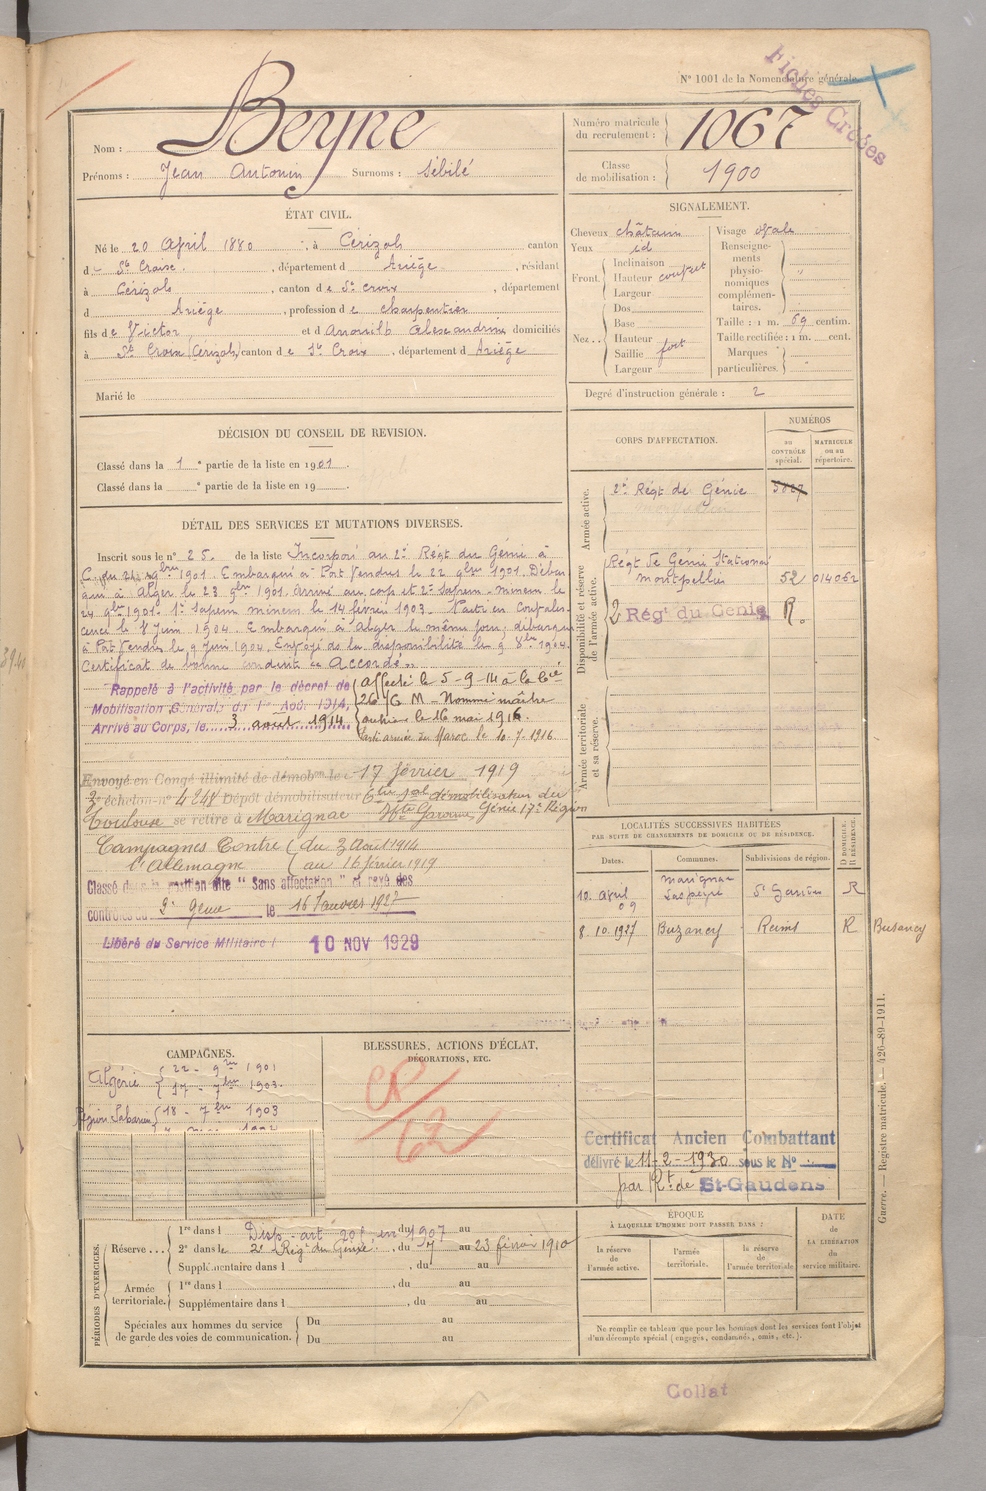 N° 1001 de la Nomenclature générale.
Fiches Créées
Nom : Beyne
Prénoms : Jean Antonin Surnoms : Sébilé
Numéro matricule du recrutement : 1067
Classe de mobilisation : 1900
ÉTAT CIVIL.
Né le 20 April 1880, à Cérizols canton
d Ste Croix, département d Ariège, résidant
à Cérizols, canton de Ste Croix, département
d Ariège, profession de charpentier
fils de Victor et d Alexandrine domiciliés
à Ste Croix (Cérizols) canton de Ste Croix, département d Ariège
Marié le
SIGNALEMENT.
Cheveux châtain
Yeux id
Front. Inclinaison
Hauteur
Largeur
Nez.. Dos
Base
Hauteur
Saillie fort
Largeur
Visage ovale
Renseignements physionomiques complémentaires. "
Taille : 1 m. 69 centim.
Taille rectifiée : 1 m. cent.
Marques particulières.
Degré d'instruction générale : 2
DÉCISION DU CONSEIL DE REVISION.
Classé dans la 1e partie de la liste en 1901.
Classé dans la e partie de la liste en 19 .
DÉTAIL DES SERVICES ET MUTATIONS DIVERSES.
Inscrit sous le n° 25. de la liste Incorporé au 2e Régt du Génie à
C. du 21 9bre 1901. Embarqué à Port Vendres le 22 9bre 1901. Débar
qué à Alger le 23 9bre 1901. Arrivé au corps et 2e Sapeur-mineur le
24 9bre 1901. 1e Sapeur mineur le 14 février 1903. Parti en Convales
cence le 8 Juin 1904. Embarqué à Alger le même jour, débarqué
à Port Vendres le 9 Juin 1904. Envoyé ds la disponibilité le 9 8bre 1904.
Certificat de bonne conduite « Accordé »
Rappelé à l'activité par le décret de
Mobilisation Générale du 1er Août 1914,
Arrivé au Corps, le 3 aout 1914
affecté le 5-9-14 à la Cie
26/6 M - Nommé maître
ouvrier le 16 mai 1916.
Parti armée du Maroc le 10.7.1916
Envoyé en Congé illimité de démobon le 17 février 1919
3e échelon n° 4248 Dépôt démobilisateur Génie 17e Région
Toulouse se retire à Marignac Hte Garonne
Campagnes Contre l'Allemagne (du 3 Aout 1914
au 16 février 1919
Classé dans la position dite "Sans affectation" et rayé des
contrôles du 2e Génie le 16 Janvier 1927
Libéré du Service Militaire l 10 NOV 1929
CORPS D'AFFECTATION.
NUMÉROS
au CONTRÔLE spécial.
MATRICULE ou au répertoire.
Armée active.
2e Régt de Génie 5827
Disponibilité et réserve de l'armée active.
Régt de Génie Stationné
Montpellier 52 014062
2 Régt du Génie R.
Armée territoriale et sa réserve.
LOCALITÉS SUCCESSIVES HABITÉES
PAR SUITE DE CHANGEMENTS DE DOMICILE OU DE RÉSIDENCE.
Dates. Communes. Subdivisions de région. D DOMICILE. R RÉSIDENCE.
10 April 09 Marignac Laspeyre St Gaudens R
8.10.1927 Buzancy Reims R Busancy
CAMPAGNES.
Algérie 22 - 9bre 1901
17 - 7bre 1903.
Région Saharienne 18 - 7bre 1903
BLESSURES, ACTIONS D'ÉCLAT,
DÉCORATIONS, ETC.
CR/62
Certificat Ancien Combattant
délivré le 11-2-1930 sous le N°
par Rt de St-Gaudens
PÉRIODES D'EXERCICES.
Réserve... 1re dans l Disp. art en 1907 du au
2e dans le 2e Régt du Génie, du 7 au 23 février 1910
Supplémentaire dans l , du au
Armée territoriale. 1re dans l , du au
Supplémentaire dans l , du au
Spéciales aux hommes du service de garde des voies de communication. Du au
Du au
ÉPOQUE
À LAQUELLE L'HOMME DOIT PASSER DANS :
la réserve de l'armée active.
l'armée territoriale.
la réserve de l'armée territoriale
DATE de LA LIBÉRATION du service militaire.
Ne remplir ce tableau que pour les hommes dont les services font l'objet
d'un décompte spécial (engagés, condamnés, omis, etc.).
Guerre. — Registre matricule. — 426-89-1911.
Collat